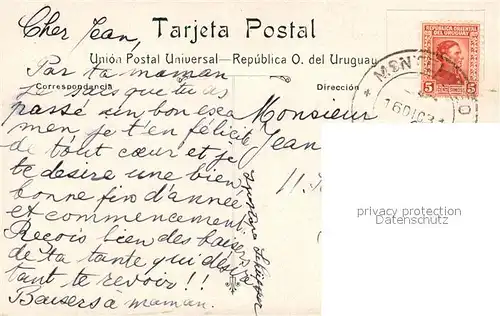 Cher Jean,
Tarjeta Postal
Unión Postal Universal—República O. del Uruguay
Correspondencia
Dirección
Par ta maman
je sais que tu as
passé un bon exa
men, je t'en félicite
de tout cœur et je
te desire une bien
bonne fin d'année
et commencement.
Reçois bien des baisers
de ta tante qui désire
tant te revoir!!
Baisers à maman.
Monsieur
Jean
11.
REPUBLICA ORIENTAL
DEL URUGUAY
5
5
CENTESIMOS
16 DIC 3
privacy protection
Datenschutz